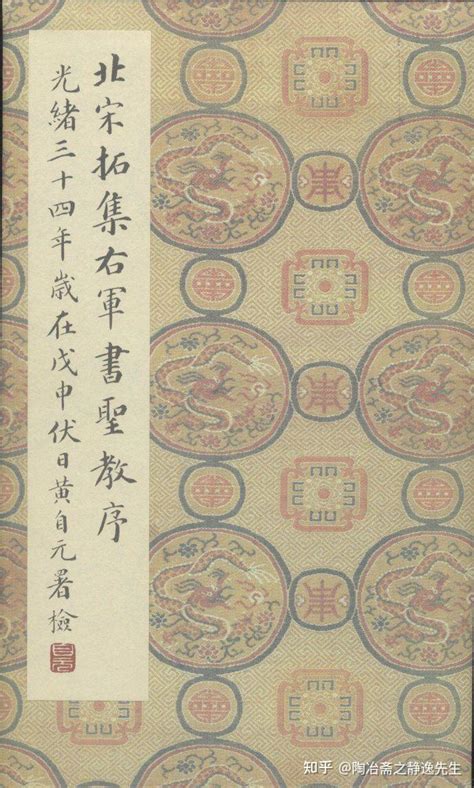 北宋拓集右軍書聖教序
光緒三十四年歲在戊申伏日黄自元署檢
自元
知乎 @陶冶斋之静逸先生